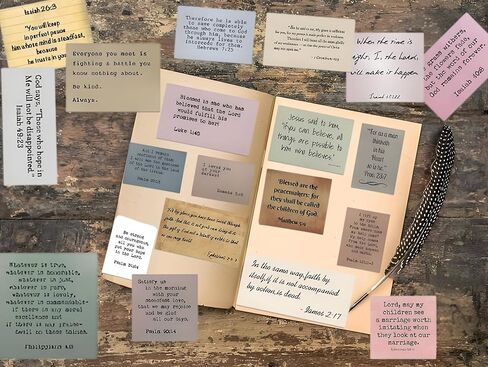 Isaiah 26:3
"You will keep
in perfect peace
him whose mind is steadfast,
because
he trusts in you
Everyone you meet is
fighting a battle you
know nothing about.
Be kind.
Always.
Therefore he is able
to save completely
those who come to God
through him, because
he always lives to
intercede for them.
Hebrews 7:25
When the time is
right, I, the Lord,
will make it happen
Isaiah 60:22
the grass withers
the flowers fade,
but the word of our
God remains forever.
Isaiah 40:8
God says, "Those who hope in
Me will not be disappointed."
Isaiah 49:23
Blessed is she who has
believed that the Lord
would fulfill his
promises to her!
Luke 1:45
Jesus said to him,
"If you can believe, all
things are possible to
him who believes."
"For as a man
thinketh
in his
Heart
so is he."
Prov. 23:7
Blessed are the
peacemakers: for
they shall be called
the children of God.
Matthew 5:9
I loved you
at your
darkest
Romans 5:8
Be strong
and courageous,
all you who
put your hope
in the Lord.
Psalm 31:24
For by grace you have been saved through
faith. And this is not your own doing; it is
the gift of God, not a result of works, so that
no one may boast.
Ephesians 2:8-9
In the same way, faith by
itself, if it is not accompanied
by action, is dead.
- James 2:17
Whatever is true,
whatever is honorable,
whatever is just,
whatever is pure,
whatever is lovely,
whatever is commendable-
if there is any moral
excellence and
if there is any praise-
dwell on these things.
Philippians 4:8
Satisfy us
in the morning
with your
steadfast love,
that we may rejoice
and be glad
all our days.
Psalm 90:14
Lord, may my
children see
a marriage worth
imitating when
they look at our
marriage.